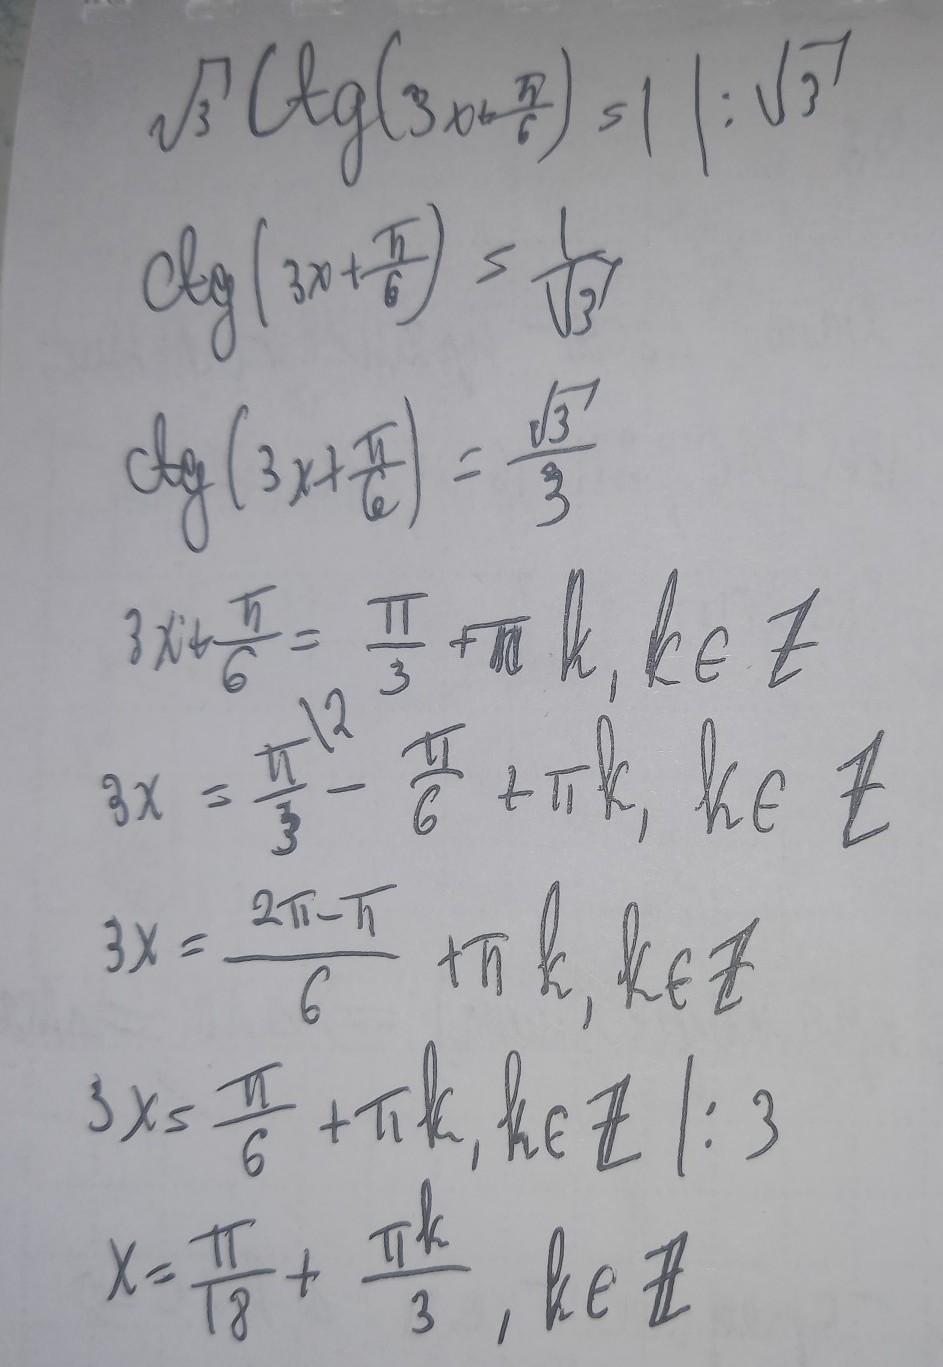 √3 Ctg(3x+π/6) = 1 |: √3
ctg(3x+π/6) = 1/√3
ctg(3x+π/6) = √3/3
3x+π/6 = π/3 + πk, k∈Z
3x = π/3\2 − π/6 + πk, k∈Z
3x = (2π−π)/6 + πk, k∈Z
3x = π/6 + πk, k∈Z |: 3
x = π/18 + πk/3, k∈Z